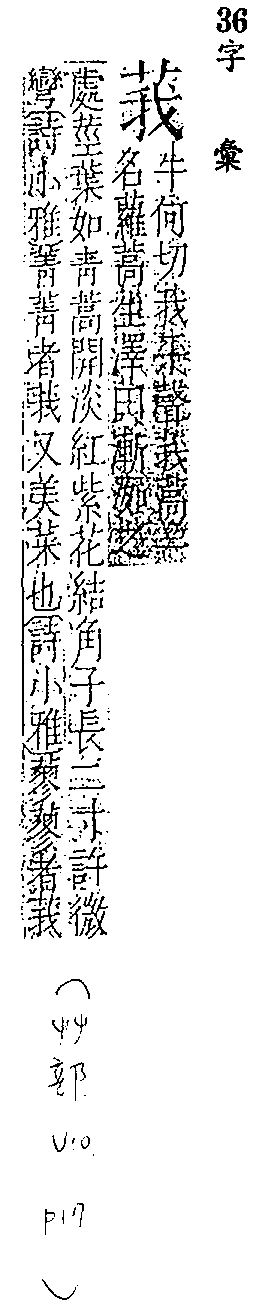 36字彙
莪
牛何切我平聲莪蒿一
名蘿蒿生澤田漸洳之
處莖葉如青蒿開淡紅紫花結角子長二寸許微
彎詩小雅菁菁者莪又美菜也詩小雅蓼蓼者莪
(艸部 V10. P17)